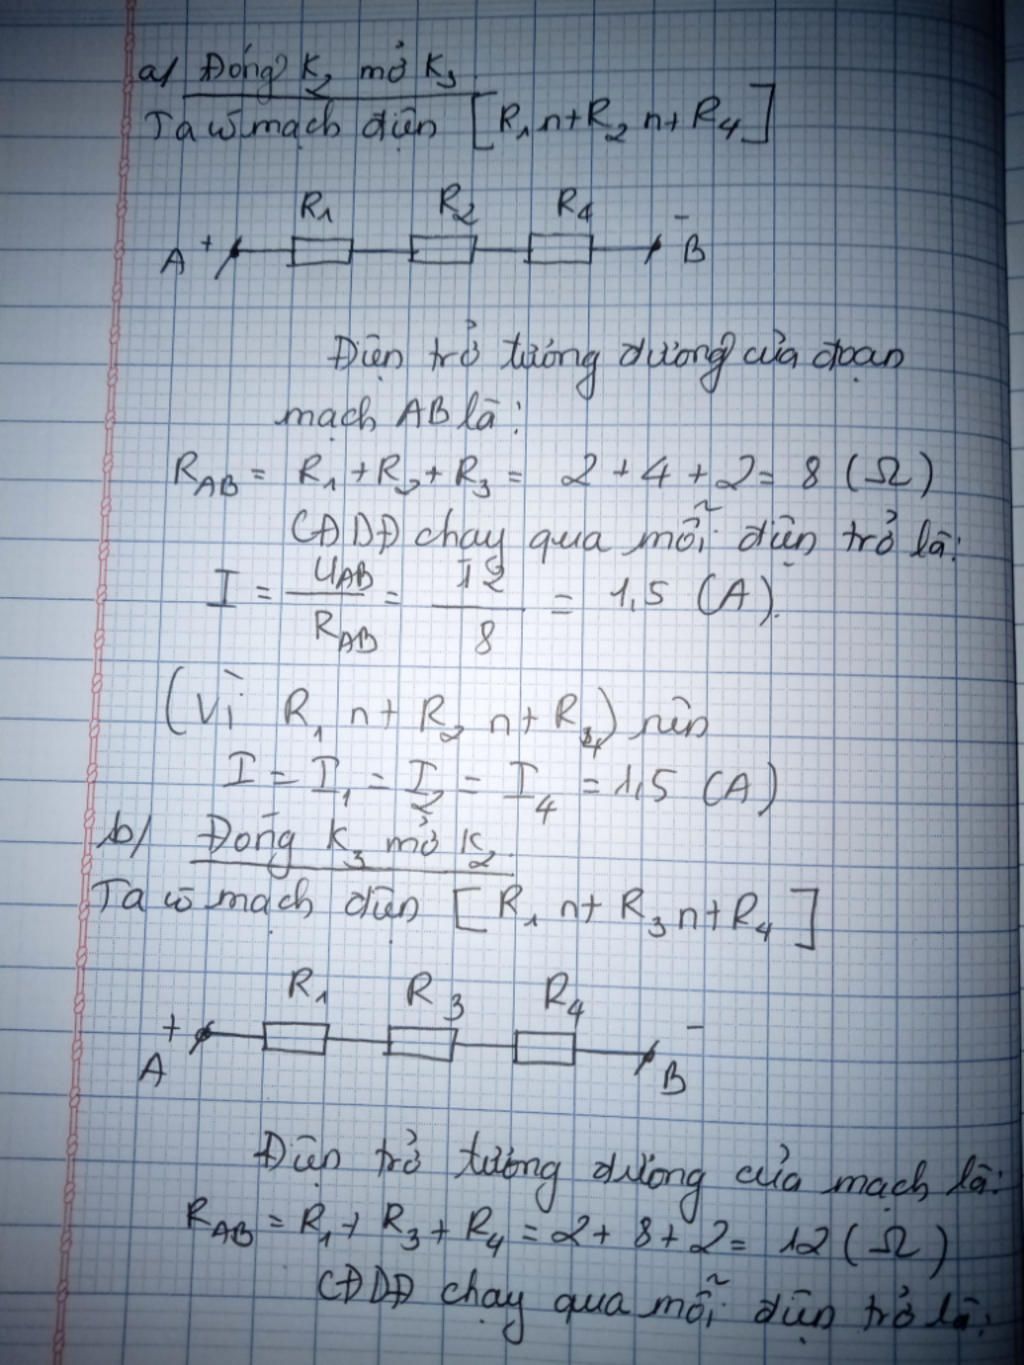 a/ Đóng K2 mở K3
Ta có mạch điện [R1 nt R2 nt R4]
R1 R2 R4
A + - B
Điện trở tương đương của đoạn
mạch AB là:
RAB = R1 + R2 + R3 = 2 + 4 + 2 = 8 (Ω)
CĐDĐ chạy qua mỗi điện trở là:
I = UAB / RAB = 12 / 8 = 1,5 (A).
(Vì R1 nt R2 nt R4) nên
I = I1 = I2 = I4 = 1,5 (A)
b/ Đóng K3 mở K2
Ta có mạch điện [R1 nt R3 nt R4]
R1 R3 R4
A + - B
Điện trở tương đương của mạch là:
RAB = R1 + R3 + R4 = 2 + 8 + 2 = 12 (Ω)
CĐDĐ chạy qua mỗi điện trở là: